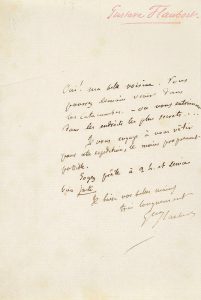 Gustave Flaubert
Oui! ma belle voisine. Vous
pouvez demain venir dans
les catacombes - on vous
dans les endroits les plus secrets...
Je vous engage à vous vêtir
pour cette expédition, le moins proprement
possible.
Soyez prête à 2 h. et
très
Je baise vos belles mains
très longuement
Gve Flaubert